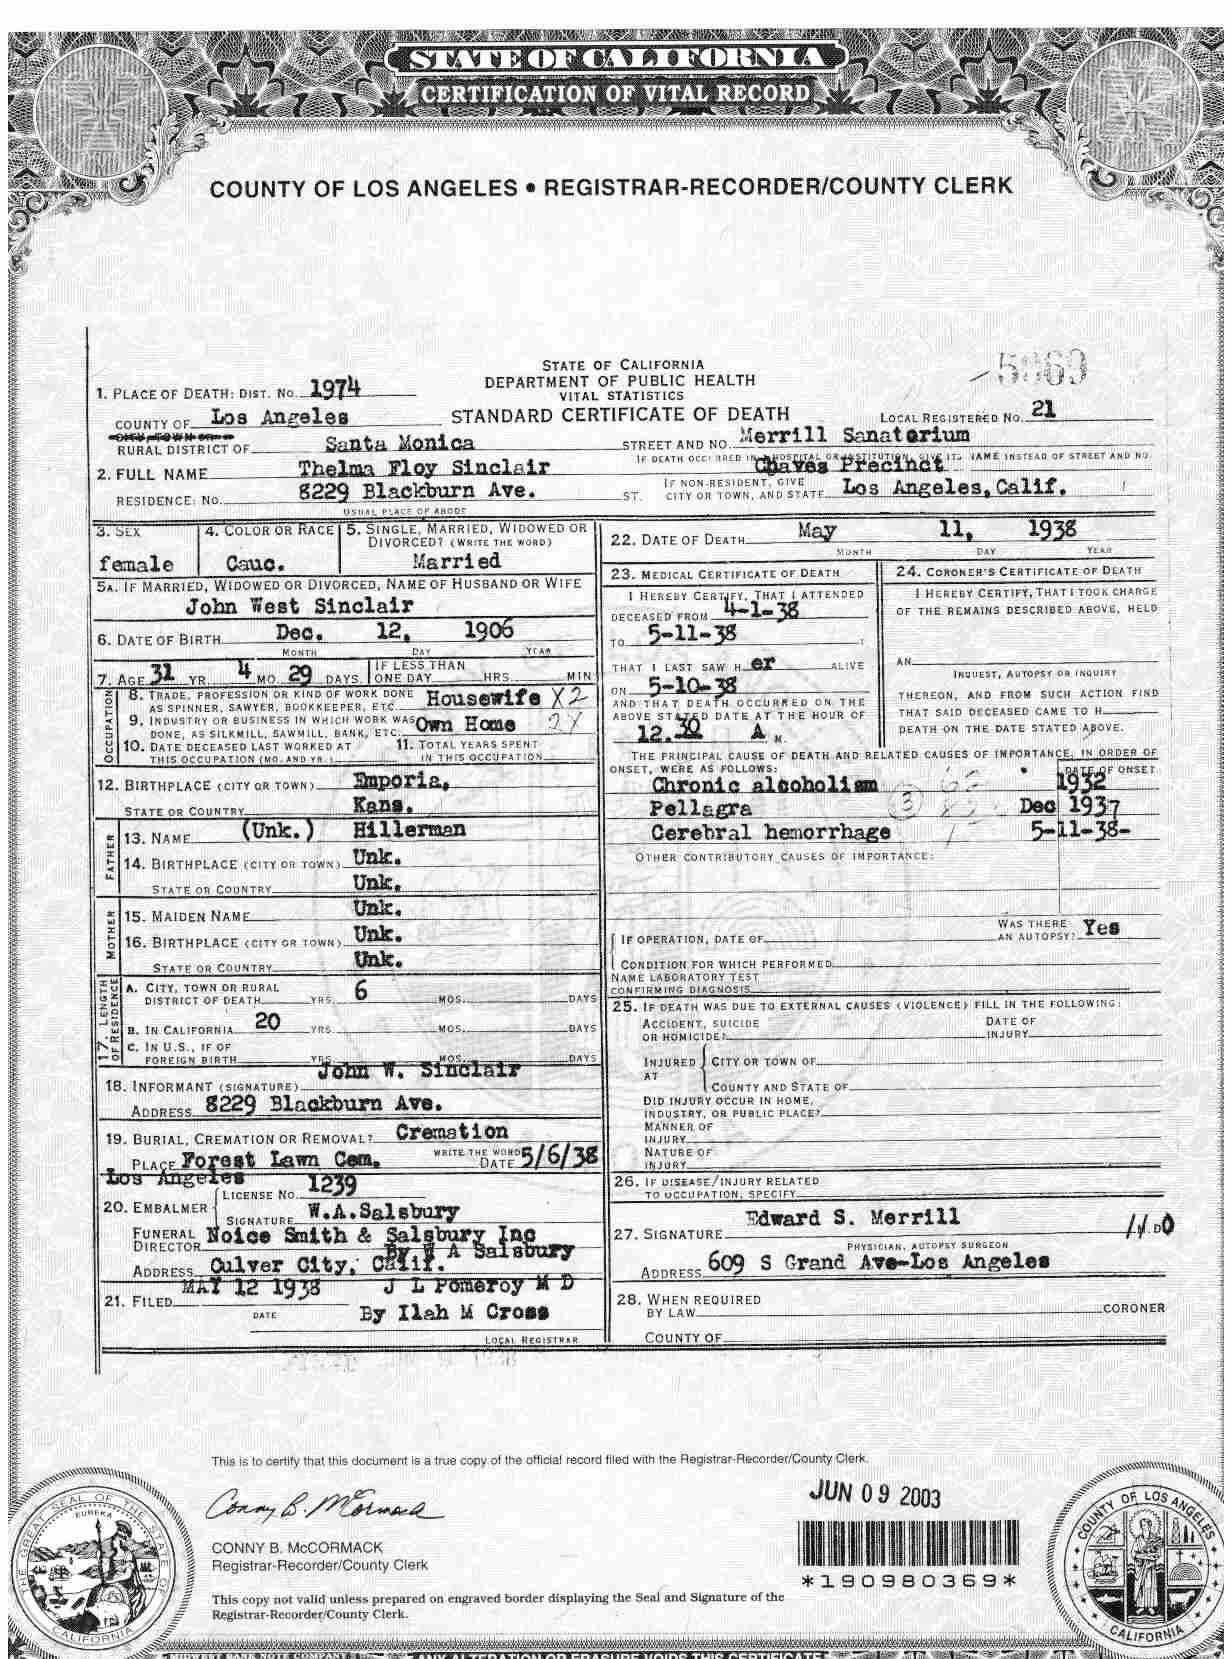 STATE OF CALIFORNIA
CERTIFICATION OF VITAL RECORD
COUNTY OF LOS ANGELES • REGISTRAR-RECORDER/COUNTY CLERK
STATE OF CALIFORNIA
DEPARTMENT OF PUBLIC HEALTH
VITAL STATISTICS
STANDARD CERTIFICATE OF DEATH
1. PLACE OF DEATH: DIST. NO. 1974
COUNTY OF Los Angeles
LOCAL REGISTERED NO. 21
RURAL DISTRICT OF Santa Monica
STREET AND NO. Merrill Sanatorium
IF DEATH OCCURRED IN A HOSPITAL OR INSTITUTION, GIVE ITS NAME INSTEAD OF STREET AND NO.
Chaves Precinct
2. FULL NAME Thelma Floy Sinclair
RESIDENCE: NO. 8229 Blackburn Ave. ST.
USUAL PLACE OF ABODE
IF NON-RESIDENT, GIVE CITY OR TOWN, AND STATE Los Angeles, Calif.
3. SEX female
4. COLOR OR RACE Cauc.
5. SINGLE, MARRIED, WIDOWED OR DIVORCED? (WRITE THE WORD) Married
5A. IF MARRIED, WIDOWED OR DIVORCED, NAME OF HUSBAND OR WIFE
John West Sinclair
6. DATE OF BIRTH Dec. 12, 1906
MONTH DAY YEAR
7. AGE 31 YR. 4 MO. 29 DAYS IF LESS THAN ONE DAY HRS. MIN
OCCUPATION
8. TRADE, PROFESSION OR KIND OF WORK DONE AS SPINNER, SAWYER, BOOKKEEPER, ETC. Housewife X2
9. INDUSTRY OR BUSINESS IN WHICH WORK WAS DONE, AS SILKMILL, SAWMILL, BANK, ETC. Own Home 2X
10. DATE DECEASED LAST WORKED AT THIS OCCUPATION (MO. AND YR.)
11. TOTAL YEARS SPENT IN THIS OCCUPATION
12. BIRTHPLACE (CITY OR TOWN) Emporia,
STATE OR COUNTRY Kans.
FATHER
13. NAME (Unk.) Hillerman
14. BIRTHPLACE (CITY OR TOWN) Unk.
STATE OR COUNTRY Unk.
MOTHER
15. MAIDEN NAME Unk.
16. BIRTHPLACE (CITY OR TOWN) Unk.
STATE OR COUNTRY Unk.
17. LENGTH OF RESIDENCE
A. CITY, TOWN OR RURAL DISTRICT OF DEATH YRS. 6 MOS. DAYS
B. IN CALIFORNIA 20 YRS. MOS. DAYS
C. IN U.S., IF OF FOREIGN BIRTH YRS. MOS. DAYS
18. INFORMANT (SIGNATURE) John W. Sinclair
ADDRESS 8229 Blackburn Ave.
19. BURIAL, CREMATION OR REMOVAL? Cremation
WRITE THE WORD
PLACE Forest Lawn Cem. DATE 5/6/38
Los Angeles
20. EMBALMER LICENSE NO. 1239
SIGNATURE W.A.Salsbury
FUNERAL DIRECTOR Noice Smith & Salsbury Inc
By W A Salsbury
ADDRESS Culver City, Calif.
21. FILED MAY 12 1938 J L Pomeroy M D
DATE By Ilah M Cross
LOCAL REGISTRAR
22. DATE OF DEATH May 11, 1938
MONTH DAY YEAR
23. MEDICAL CERTIFICATE OF DEATH
I HEREBY CERTIFY, THAT I ATTENDED
DECEASED FROM 4-1-38
TO 5-11-38
THAT I LAST SAW H er ALIVE
ON 5-10-38
AND THAT DEATH OCCURRED ON THE
ABOVE STATED DATE AT THE HOUR OF
12.30 A M.
24. CORONER'S CERTIFICATE OF DEATH
I HEREBY CERTIFY, THAT I TOOK CHARGE
OF THE REMAINS DESCRIBED ABOVE, HELD
AN
INQUEST, AUTOPSY OR INQUIRY
THEREON, AND FROM SUCH ACTION FIND
THAT SAID DECEASED CAME TO H
DEATH ON THE DATE STATED ABOVE.
THE PRINCIPAL CAUSE OF DEATH AND RELATED CAUSES OF IMPORTANCE, IN ORDER OF
ONSET, WERE AS FOLLOWS: DATE OF ONSET
Chronic alcoholism 1932
Pellagra 3 Dec 1937
Cerebral hemorrhage 5-11-38-
OTHER CONTRIBUTORY CAUSES OF IMPORTANCE:
IF OPERATION, DATE OF WAS THERE AN AUTOPSY? Yes
CONDITION FOR WHICH PERFORMED
NAME LABORATORY TEST
CONFIRMING DIAGNOSIS
25. IF DEATH WAS DUE TO EXTERNAL CAUSES (VIOLENCE) FILL IN THE FOLLOWING:
ACCIDENT, SUICIDE OR HOMICIDE? DATE OF INJURY
INJURED AT CITY OR TOWN OF
COUNTY AND STATE OF
DID INJURY OCCUR IN HOME,
INDUSTRY, OR PUBLIC PLACE?
MANNER OF INJURY
NATURE OF INJURY
26. IF DISEASE/INJURY RELATED
TO OCCUPATION, SPECIFY
27. SIGNATURE Edward S. Merrill M.D.
PHYSICIAN, AUTOPSY SURGEON
ADDRESS 609 S Grand Ave-Los Angeles
28. WHEN REQUIRED BY LAW CORONER
COUNTY OF
This is to certify that this document is a true copy of the official record filed with the Registrar-Recorder/County Clerk.
Conny B. McCormack
CONNY B. McCORMACK
Registrar-Recorder/County Clerk
JUN 09 2003
*190980369*
This copy not valid unless prepared on engraved border displaying the Seal and Signature of the
Registrar-Recorder/County Clerk.
THE GREAT SEAL OF THE STATE OF CALIFORNIA
EUREKA
COUNTY OF LOS ANGELES
CALIFORNIA
MIDWEST BANK NOTE COMPANY
ANY ALTERATION OR ERASURE VOIDS THIS CERTIFICATE